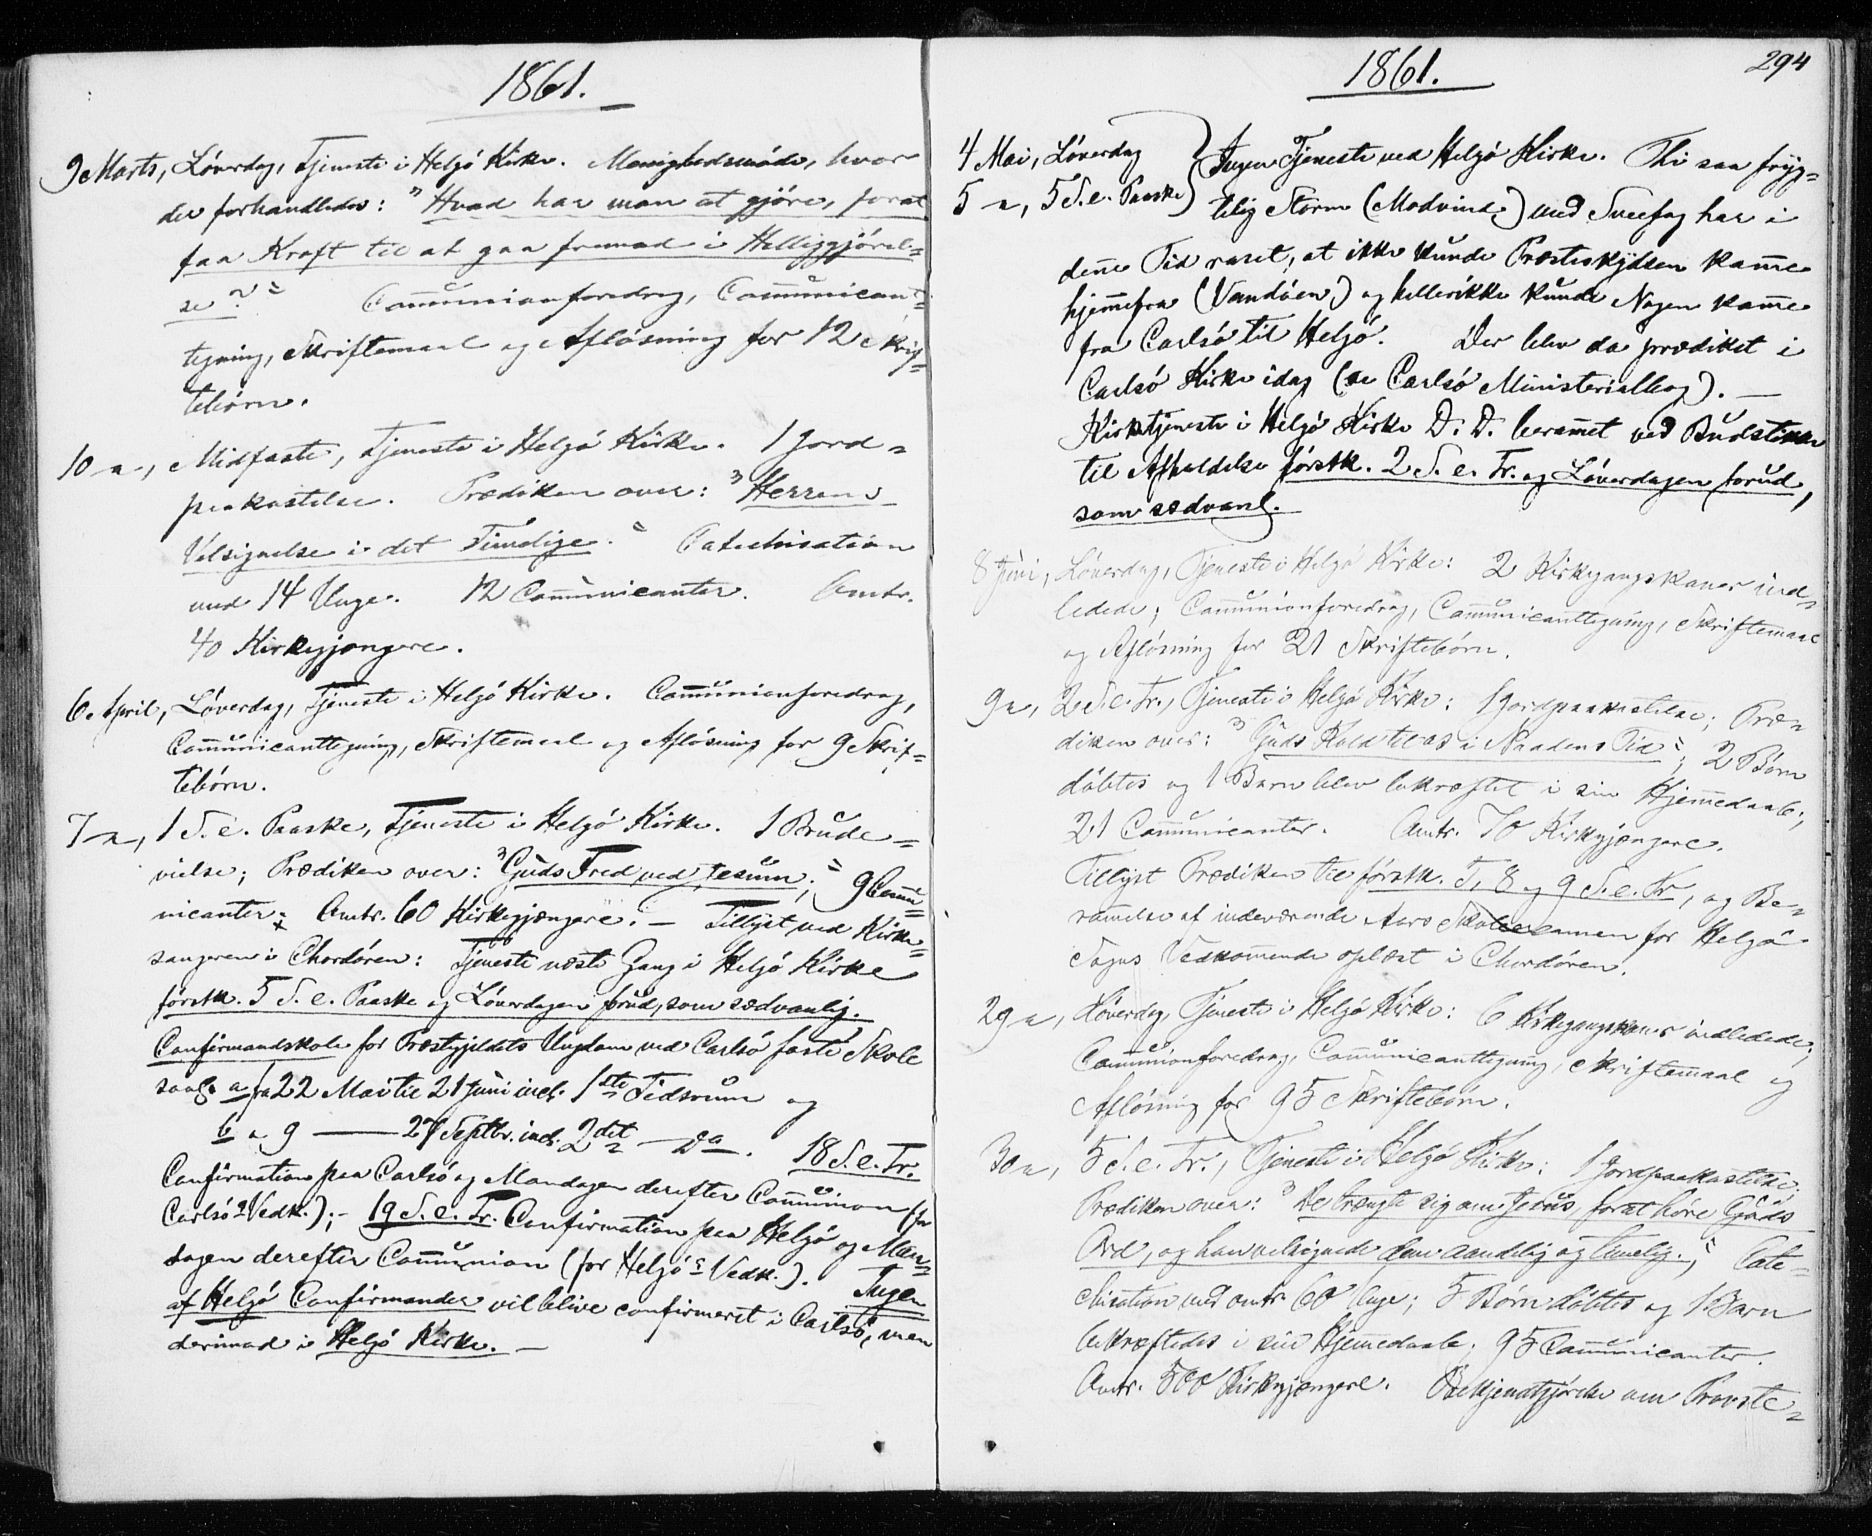 1861.
9 Marts, Löverdag, Tjeneste i Helgö Kirke. Menighedsmöde, hvor
der forhandledes: "Hvad har man at gjöre, forat
faa Kraft til at gaa fremad i Helliggjörel=
se?" Com̄unionforedrag, Com̄unicant=
tegning, Skriftemaal og Aflösning for 12 Skrif=
tebörn.
10 " , Midfaste, Tjeneste i Helgö Kirke. 1 Jord=
paakastelse. Prædiken over: "Herrens
Velsignelse i det Timelige." Catechisation
med 14 Unge. 12 Com̄unicanter. Omtr.
40 Kirkegjængere.
6. April, Löverdag, Tjeneste i Helgö Kirke. Com̄unionforedrag,
Com̄unicanttegning, Skriftemaal og Aflösning for 9 Skrif=
tebörn.
7 " , 1 S. e. Paaske, Tjeneste i Helgö Kirke. 1 Brude=
vielse; Prædiken over: "Guds Fred ved Jesum;" 9 Com̄u=
nicanter; Omtr. 60 Kirkegjængere. — Tillyst ved Kirke=
sangeren i Chordören: Tjeneste næste Gang i Helgö Kirke
förstk. 5 S. e. Paaske og Löverdagen forud, som sædvanlig.
Confirmandskole for Præstegjeldets Ungdom ved Carlsö faste Skole
saal. a fra 22 Mai til 21 Juni incl. 1ste Tidsrum og
b " 9 — 27 Septbr. incl. 2det — Do — . 18 S. e. Tr.
Confirmation paa Carlsö og Mandagen derefter Com̄union (for
Carlsös Vedk.); - 19 S. e. Tr. Confirmation paa Helgö og Man=
dagen derefter Com̄union (for Helgös Vedk.). Ingen
af Helgö Confirmander vil blive confirmeret i Carlsö, men
derimod i Helgö Kirke. —
1861.
294
4 Mai, Löverdag } Ingen Tjeneste ved Helgö Kirke. Thi saa fryg=
5 " , 5 S. e. Paaske } telig Storm (Modvind) med Sneefog har i
den̄e Tid raset, at ikke kunde Præsteskydsen kom̄e
hjem̄efra (Vandöen) og hellerikke kunde Nogen kom̄e
fra Carlsö til Helgö. Der blev da prædiket i
Carlsö Kirke idag (se Carlsö Ministerialbog). —
Kirketjeneste i Helgö Kirke D. D. beram̄et ved Budstikke
til Afholdelse förstk. 2 S. e. Tr. og Löverdagen forud,
som sædvanl.
8 Juni, Löverdag, Tjeneste i Helgö Kirke: 2 Kirkegangskoner ind=
ledede; Com̄unionforedrag, Com̄unicanttegning, Skriftemaal
og Aflösning for 21 Skriftebörn.
9 " , 2 S. e. Tr., Tjeneste i Helgö Kirke: 1 Jordpaakastelse; Præ=
diken over: "Guds Kald til os i Naadens Tid"; 2 Börn
döbtes og 1 Barn blev bekræftet i sin Hjem̄edaab;
21 Com̄unicanter. Omtr. 70 Kirkegjængere.
Tillyst Prædiken til förstk. 5, 8 og 9 S. e. Tr, og Be=
ram̄else af indeværende Aars Skoleexamen for Helgö
Sogns Vedkom̄ende oplæst i Chordören.
29 " , Löverdag, Tjeneste i Helgö Kirke: 6 Kirkegangskoner indledede;
Com̄unionforedrag, Com̄unicanttegning, Skriftemaal og
Aflösning for 95 Skriftebörn.
30 " , 5 S. e. Tr., Tjeneste i Helgö Kirke: 1 Jordpaakastelse;
Prædiken over: "De trængte sig om Jesus, forat höre Guds
Ord, og han velsignede dem aandelig og timelig."; Cate=
chisation med omtr 60 Unge; 5 Börn döbtes og 1 Barn
bekræftedes i sin Hjem̄edaab; 95 Com̄unicanter.
Omtr. 500 Kirkegjængere. Bekjendtgjörelse om Provste=